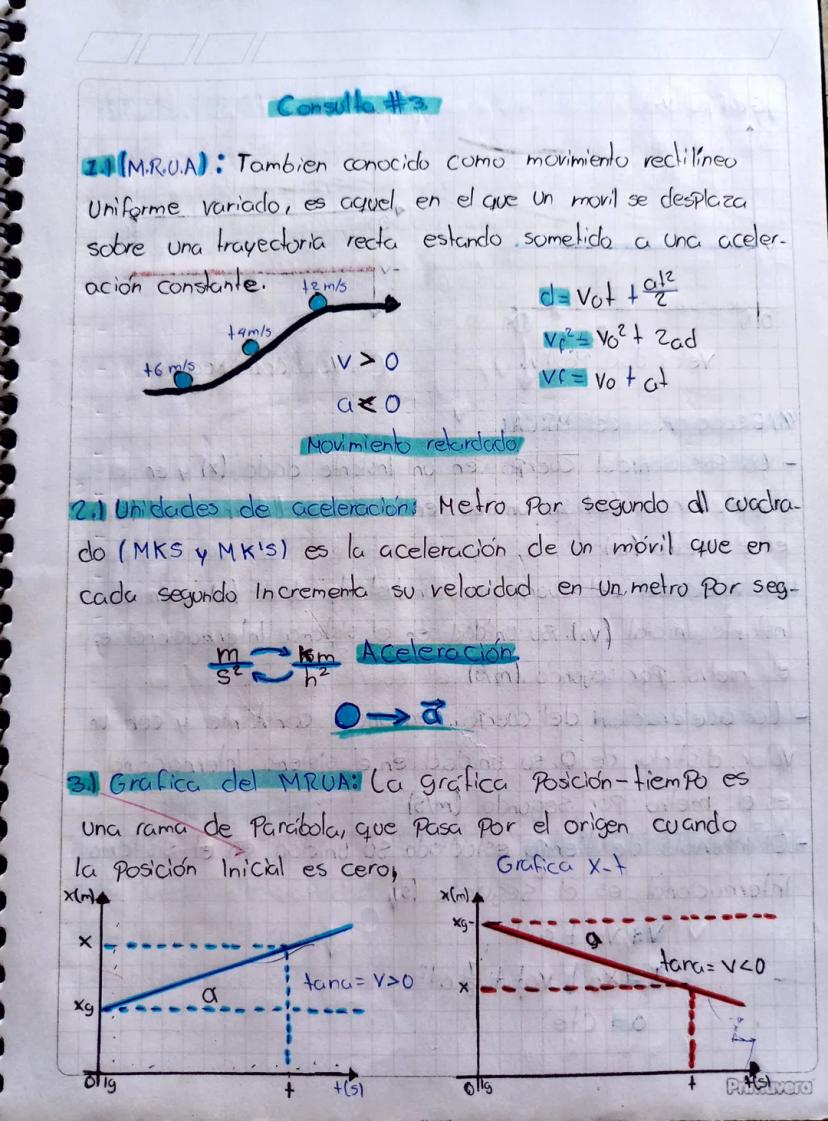 Consulta #3.
1.) (M.R.U.A): Tambien conocido como movimiento rectilíneo
Uniforme variado, es aquel, en el que un movil se desplaza
sobre una trayectoria recta estando sometido a una aceler-
ación constante.
+2m/s
+4m/s
+6m/s
v > 0
a < 0
d= Vot + at²/2
Vf²= Vo² + 2ad
Vf= Vo + at
Movimiento retardado
2.) Unidades de aceleración: Metro Por segundo al cuadra-
do (MKS y MK'S) es la aceleración de un móvil que en
cada segundo Incrementa su velocidad en un metro Por seg-
m/s² km/h² Aceleración.
a⃗
3.) Grafica del MRUA: La gráfica Posición-tiempo es
una rama de Parábola, que Pasa Por el origen cuando
la Posición Inicial es cero,
Grafica x-t
x(m)
x
xg
a
tana = V>0
t
t(s)
x(m)
xg
x
a
tana = V<0
t
t(s)
Primavera